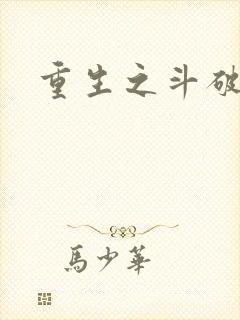 重生之斗破
馬少華